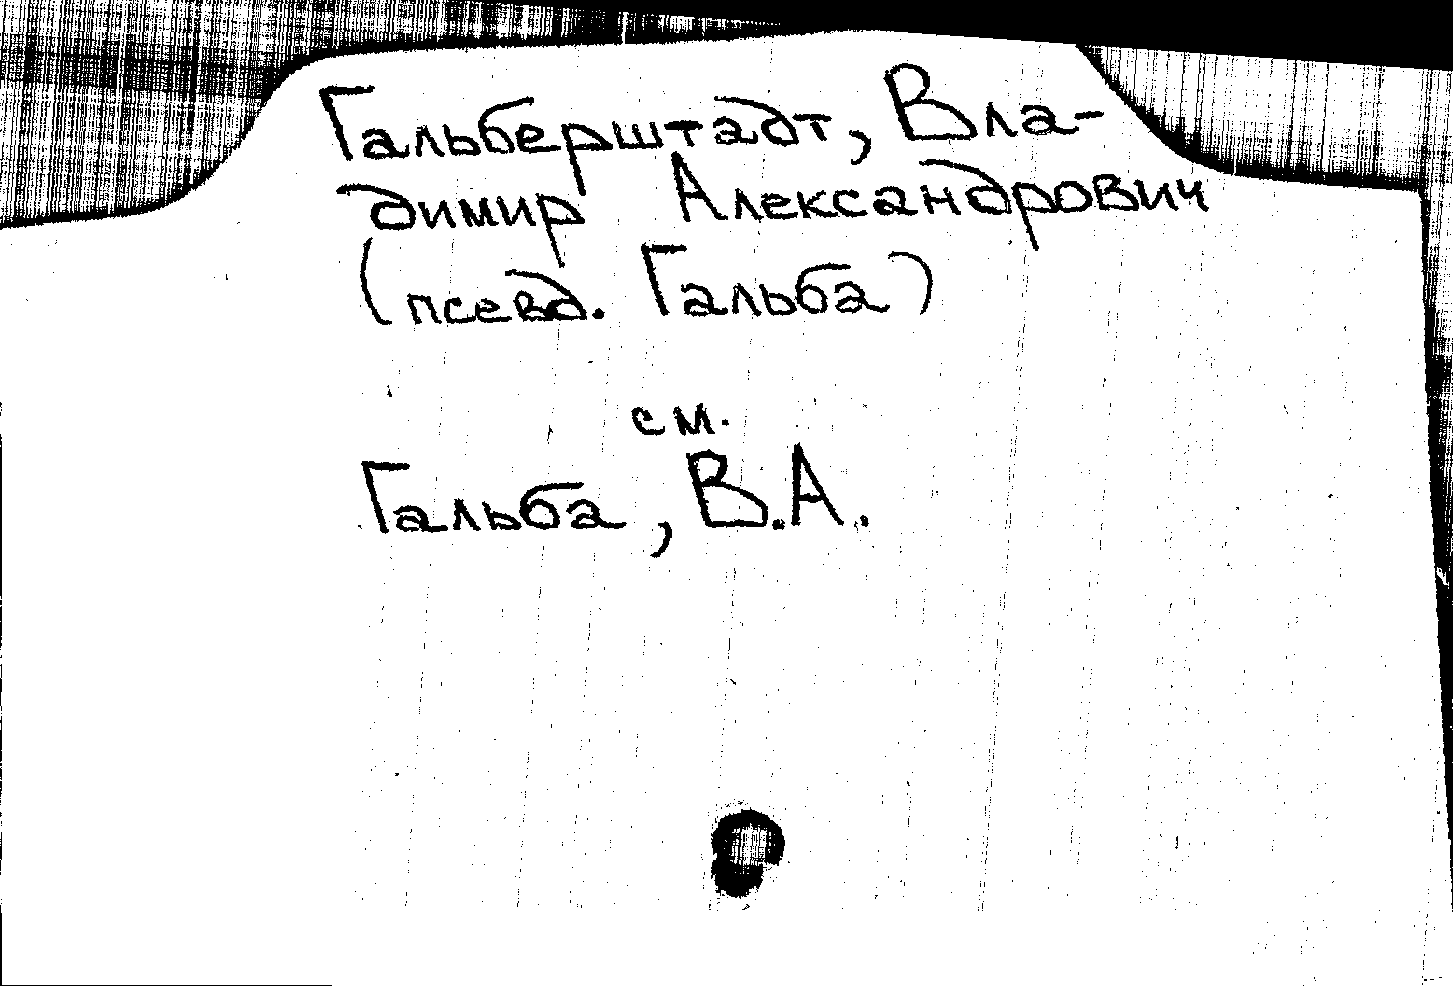 Гальберштадт, Вла-
димир Александрович
(псевд. Гальба)
см.
Гальба, В.А.